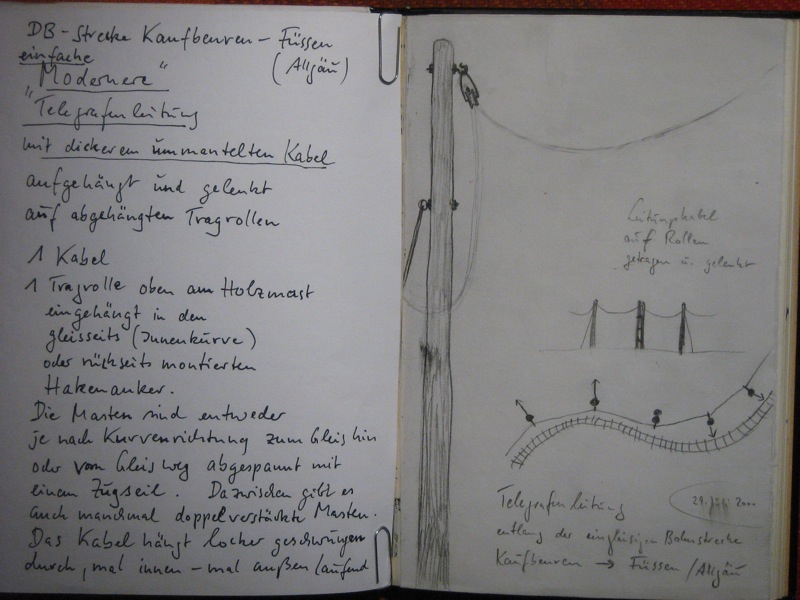 DB-Strecke Kaufbeuren - Füssen
(Allgäu)
einfache
"Modernere"
"Telegrafenleitung
mit dickerem ummantelten Kabel
aufgehängt und gelenkt
auf abgehängten Tragrollen
1 Kabel
1 Tragrolle oben am Holzmast
eingehängt in den
gleisseits (Innenkurve)
oder rückseits montierten
Hakenanker.
Die Masten sind entweder
je nach Kurvenrichtung zum Gleis hin
oder vom Gleis weg abgespannt mit
einem Zugseil. Dazwischen gibt es
auch manchmal doppelverstärkte Masten.
Das Kabel hängt locker geschwungen
durch, mal innen - mal außen laufend
Leitungskabel
auf Rollen
getragen u. gelenkt
Telegrafenleitung
29. Juli 2000
entlang der eingleisigen Bahnstrecke
Kaufbeuren → Füssen /Allgäu